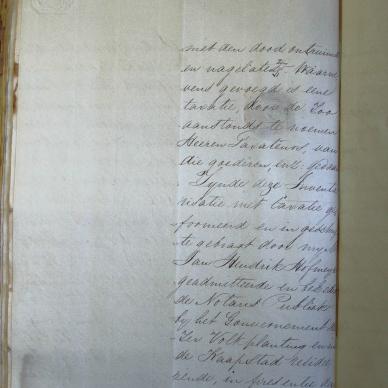 met den dood ontruimd
en nagelaten Waarne
vens gevoegd is eene
taxatie, door de Zoo
aanstonds te noemen
Heeren Taxateurs, van
die goederen,
Zynde deze Inventa
risatie met Taxatie ge
formeerd en en geschr
te gebragt door my
Jan Hendrik Hofmeyr
geadmitteerde en
de Notaris Publiek
by het Gouvernement
Zer Volkplanting en
de Kaapstad resid
eende, in presentie